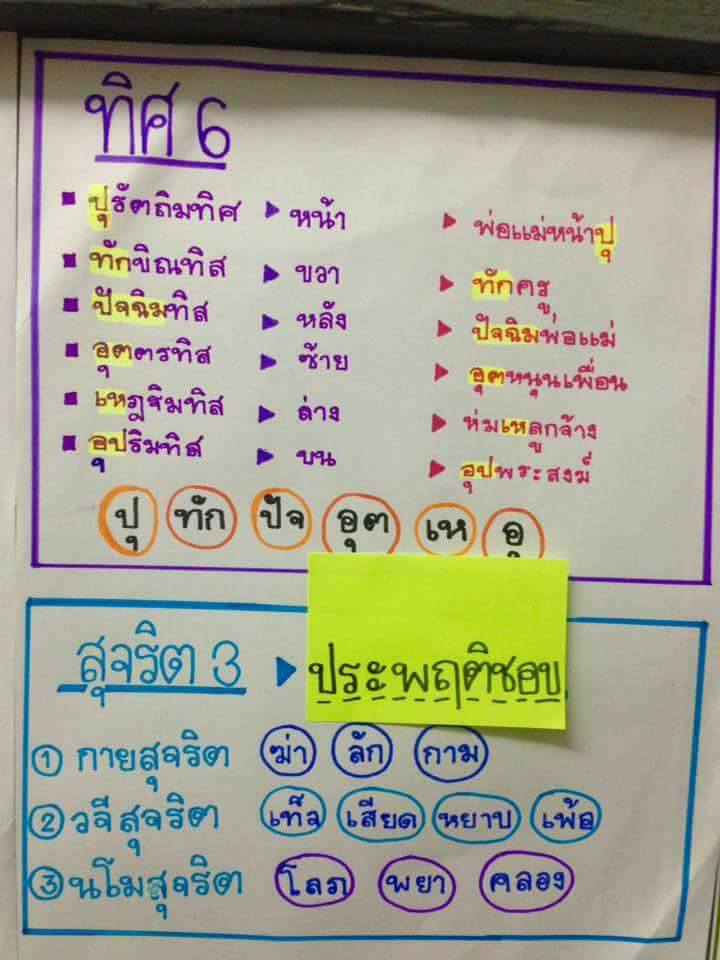 ทิศ 6
▪ ปุรัตถิมทิศ ▶ หน้า ▶ พ่อแม่หน้าปุ
▪ ทักขิณทิส ▶ ขวา ▶ ทักครู
▪ ปัจฉิมทิส ▶ หลัง ▶ ปัจฉิมพ่อแม่
▪ อุตตรทิส ▶ ซ้าย ▶ อุตหนุนเพื่อน
▪ เหฏฐิมทิส ▶ ล่าง ▶ ห่มเหลูกจ้าง
▪ อุปริมทิส ▶ บน ▶ อุปพระสงฆ์
ปุ ทัก ปัจ อุต เห อุ
สุจริต 3 ▶ ประพฤติชอบ
① กายสุจริต ฆ่า ลัก กาม
② วจีสุจริต เท็จ เสียด หยาบ เพ้อ
③ นโมสุจริต โลภ พยา คลอง